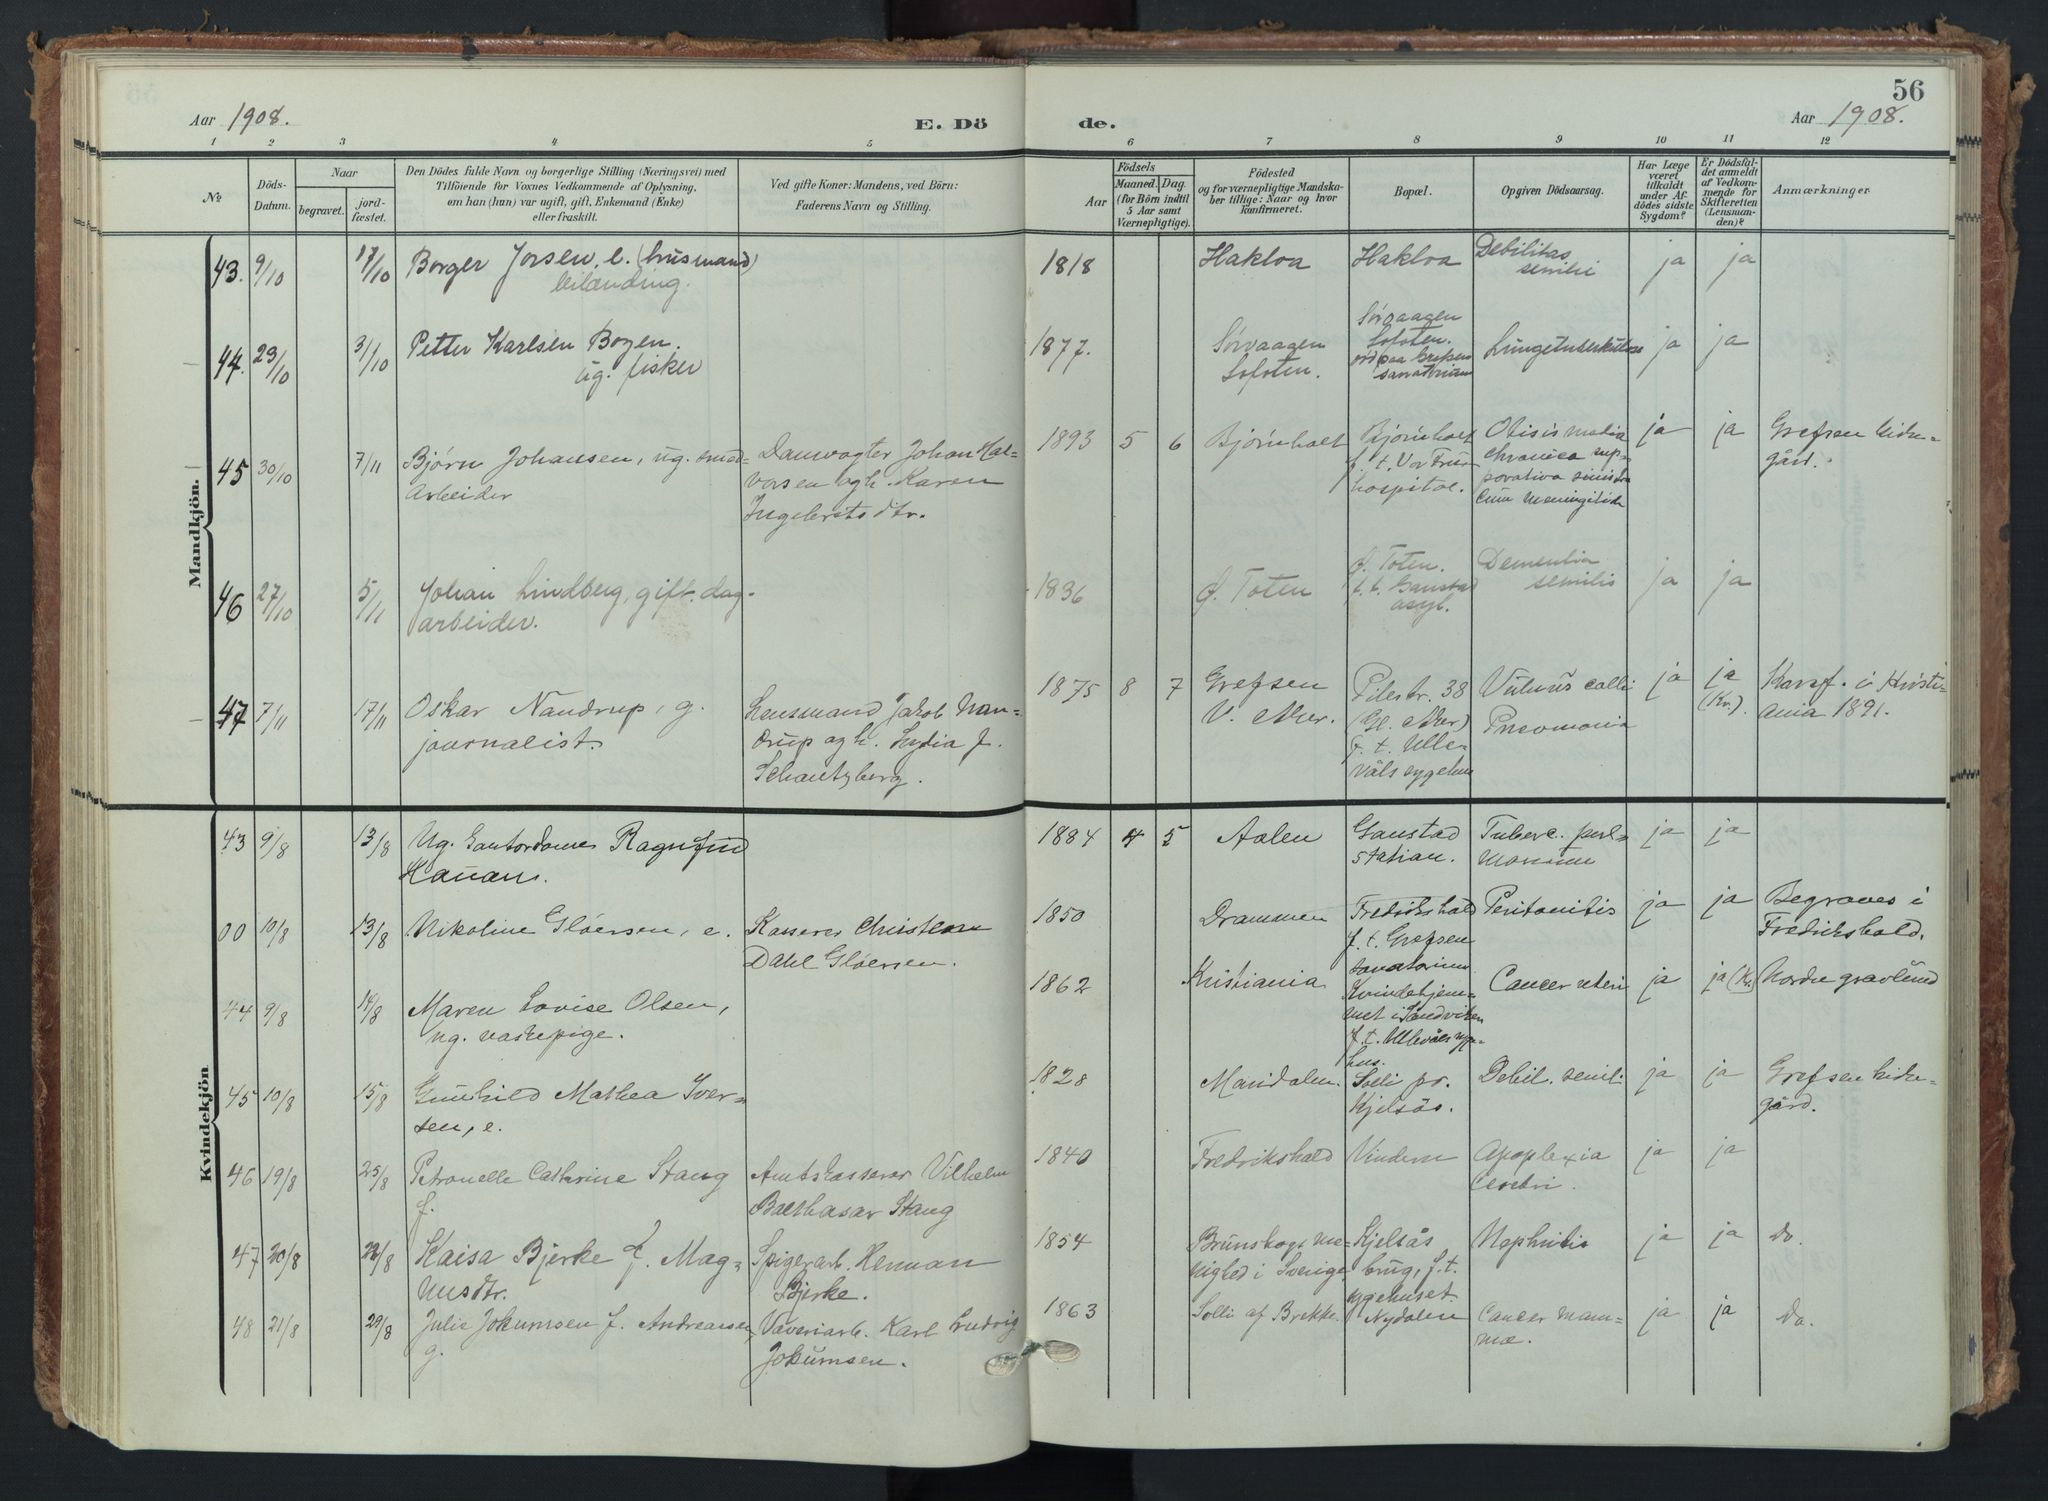 56
Aar 1908.
E. Dö
de.
Aar 1908.
1 2 3 4 5 6 7 8 9 10 11 12
No
Döds-
Datum.
Naar
begravet.
jord-
fæstet.
Den Dödes fulde Navn og borgerlige Stilling (Næringsvei) med
Tilföiende for Voxnes Vedkommende af Oplysning,
om han (hun) var ugift, gift, Enkemand (Enke)
eller fraskilt.
Ved gifte Koner: Mandens, ved Börn:
Faderens Navn og Stilling.
Aar
Födsels
Maaned. Dag.
(for Börn indtil
5 Aar samt
Værnepligtige).
Födested
og for værnepligtige Mandska-
ber tillige: Naar og hvor
konfirmeret.
Bopæl.
Opgiven Dödsaarsag.
Har Læge
været
tilkaldt
under Af-
dödes sidste
Sygdom?
Er Dödsfal-
det anmeldt
af Vedkom-
mende for
Skifteretten
(Lensman-
den)?
Anmærkninger
Mandkjön.
43. 9/10 17/10 Borger Jorsen, e. (husmand)
leilænding.
1818 Hakloa Hakloa Debilitas
senilis ja ja
44. 23/10 31/10 Petter Karlsen Bogen.
ug. fisker
1877. Sørvaagen
Lofoten. Sørvaagen
Lofoten.
paa Grefsen
sanatorium Lungetuberkulose ja ja
45 30/10 7/11 Bjørn Johansen, ug. smed-
arbeider
Damvogter Johan Hal-
vorsen og h. Karen
Ingebretsdtr.
1893 5 6 Bjørnholt Bjørnholt
f. t. Vor Frue
hospital. Otisis media
chronica sup-
porativa sinistra
cum meningitide ja ja Grefsen kirke-
gård.
46 27/10 5/11 Johan Lindberg, gift. dag-
arbeider.
1836 Ø. Toten Ø. Toten.
f. t. Gaustad
asyl. Dementia
senilis ja ja
47 7/11 17/11 Oskar Nandrup, g.
journalist.
Lensmand Jakob Nan-
drup og h. Lydia f.
Schantzberg.
1875 8 7 Grefsen
V. Aker. Pilestr. 38
(Gl. Aker)
f. t. Ulle-
våls sygehus Vulnus colli
Pneomonia ja ja
(Kr.) Konf. i Kristi-
ania 1891.
Kvindekjön
43 9/8 13/8 Ug. Kontordame Ragnfrid
Hauan.
1884 4 5 Aalen Gaustad
station. Tuberc. pul-
monum ja ja
00 10/8 13/8 Nikoline Gløersen, e. Kasserer Christian
Dahl Gløersen.
1850 Drammen Fredrikshald
f. t. Grefsen
sanatorium Peritonitis ja ja Begraves i
Fredrikshald.
44 9/8 14/8 Maren Lovise Olsen,
ug. vaskepige.
1862 Kristiania Kvindehjem-
met i Sandviken
f. t. Ullevåls syge-
hus. Cancer uteri ja ja (Kr.) Nordre gravlund
45 10/8 15/8 Gunhild Mathea Iver-
sen, e.
1828 Maridalen. Solli pr.
Kjelsås. Debil. senili ja ja Grefsen kirke-
gård.
46 19/8 25/8 Petronelle Cathrine Stang
f.
Amtskasserer Vilhelm
Balthasar Stang
1840 Fredrikshald Vindern Apoplexia
Cerebri. ja ja
47 20/8 22/8 Kaisa Bjerke f. Mag-
nusdtr.
Spigerarb. Herman
Bjerke.
1854 Brunskogs me-
nighed i Sverige Kjelsås
brug, f. t.
sygehuset Nephritis ja ja Do.
48 21/8 29/8 Julie Jokumsen f. Andreassen,
g.
Væveriarb. Karl Ludvig
Jokumsen.
1863 Solli af Brekke. Nydalen Cancer mam-
mæ. ja ja Do.